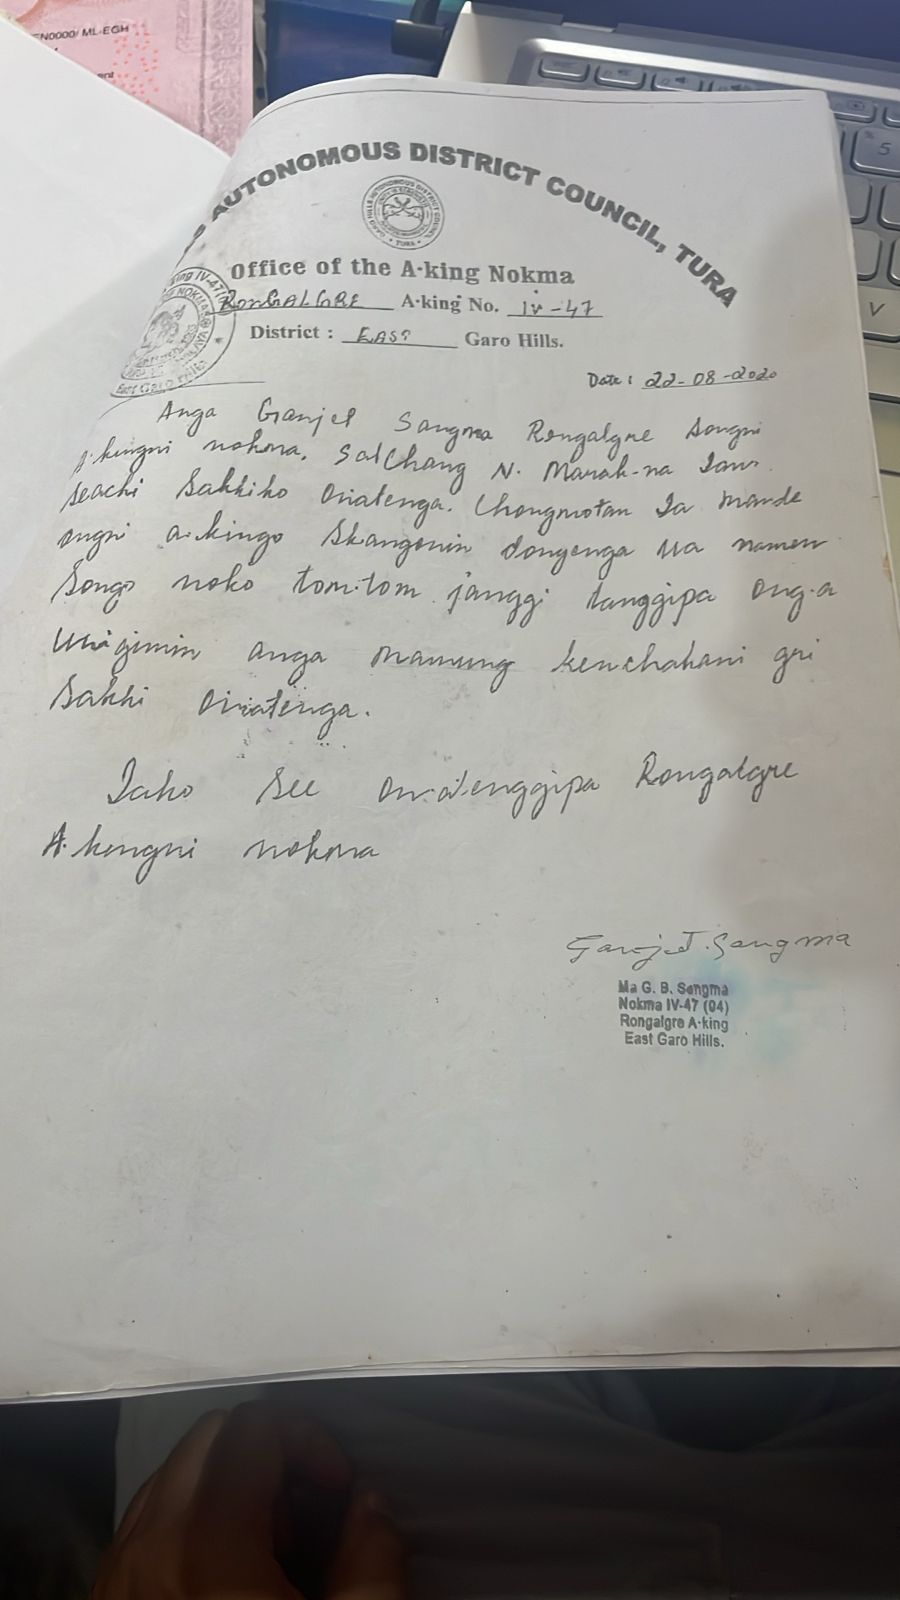 EN0000/ ML-EGH
AUTONOMOUS DISTRICT COUNCIL, TURA
GARO HILLS AUTONOMOUS DISTRICT COUNCIL
TURA
Office of the A·king Nokma
RONGALGRE A·king No. IV-47
District : EAST Garo Hills.
A·king IV-47
NOKMA
East Garo Hills
Date: 22-08-2020
Anga Ganjet Sangma Rongalgre Songni
A·kingni nokma, SalChang N. Marak-na Ian
seachi Sakkiko on·atenga. Chongmotan Ia mande
angni a·kingo Skangonin dongenga ua namen
Songo noko tom·tom janggi tanggipa ong·a
Uni gimin anga mamung kenchakani gri
Sakhi on·atenga.
Iako See on·atenggipa Rongalgre
A·kingni nokma
Ganjet Sangma
Ma G. B. Sangma
Nokma IV-47 (04)
Rongalgre A·king
East Garo Hills.
5
V